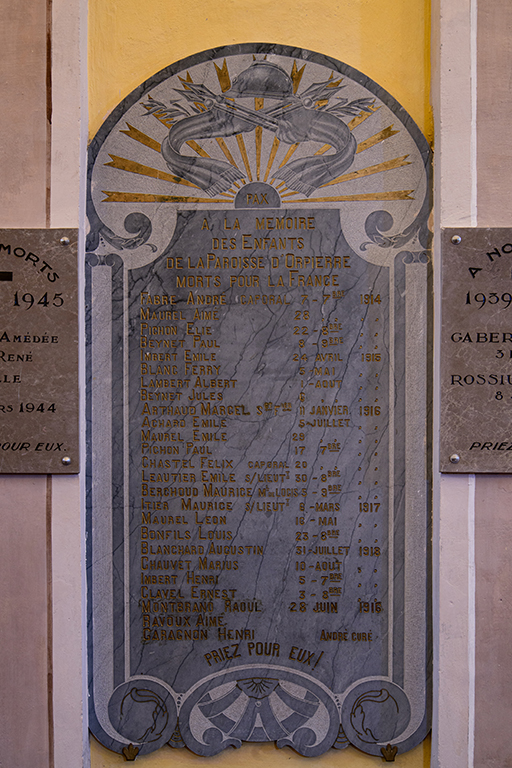 PAX
A LA MEMOIRE
DES ENFANTS
DE LA PAROISSE D'ORPIERRE
MORTS POUR LA FRANCE
FABRE ANDRÉ CAPORAL 6-7BRE 1914
MAUREL AIMÉ 28 " "
PICHON ELIE 22-8BRE " "
BEYNET PAUL 8-9BRE " "
IMBERT EMILE 24 AVRIL 1915
BLANC FERRY 5 MAI "
LAMBERT ALBERT 1-AOUT "
BEYNET JULES 6 " "
ARTHAUD MARCEL 11 JANVIER 1916
ACHARD EMILE 5-JUILLET "
MAUREL EMILE 29 " "
PICHON PAUL 17 7BRE "
CHASTEL FELIX CAPORAL 20 " "
LEAUTIER EMILE S/LIEUT 30-8BRE "
BERCHOUD MAURICE 5-9BRE "
ITIER MAURICE S/LIEUT 6-MARS 1917
MAUREL LEON 16-MAI "
BONFILS LOUIS 23-8BRE "
BLANCHARD AUGUSTIN 31-JUILLET 1918
CHAUVET MARIUS 10-AOUT "
IMBERT HENRI 5-7BRE "
CLAVEL ERNEST 3-8BRE "
MONTBRAND RAOUL 28 JUIN 1916
RAVOUX AIMÉ
GARAGNON HENRI ANDRE CURÉ
PRIEZ POUR EUX!
MORTS
1945
AMÉDÉE
RENÉ
1944
POUR EUX.
A NO
1939
GABER
ROSSIU
PRIEZ